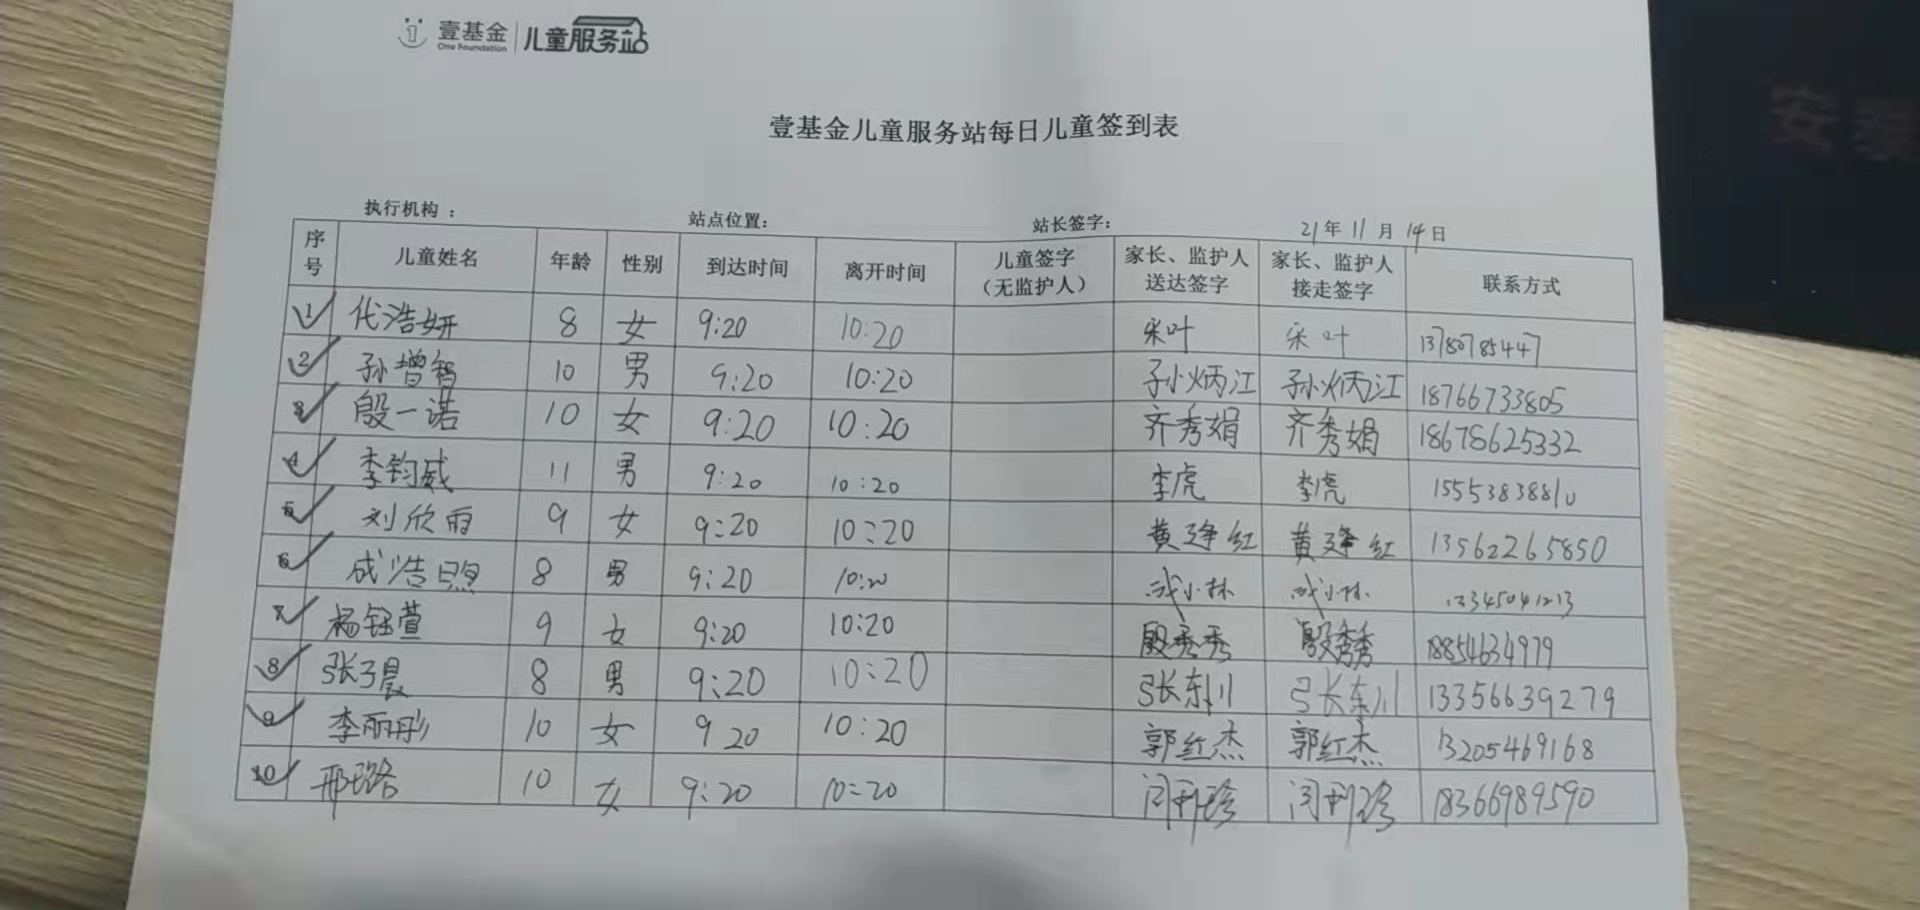 壹基金 儿童服务站
One Foundation
安泰
壹基金儿童服务站每日儿童签到表
执行机构： 站点位置： 站长签字： 21年11月14日
序号 儿童姓名 年龄 性别 到达时间 离开时间 儿童签字（无监护人） 家长、监护人送达签字 家长、监护人接走签字 联系方式
1 代浩妍 8 女 9:20 10:20 宋叶 宋叶 13780785447
2 孙增智 10 男 9:20 10:20 孙炳江 孙炳江 18766733805
3 殷一诺 10 女 9:20 10:20 齐秀娟 齐秀娟 18678625332
4 李钧威 11 男 9:20 10:20 李虎 李虎 15553838810
5 刘欣雨 9 女 9:20 10:20 黄琤红 黄琤红 13562265850
6 成浩照 8 男 9:20 10:20 成小林 成小林
7 杨钰萱 9 女 9:20 10:20 殷秀秀 殷秀秀 18854634979
8 张子晨 8 男 9:20 10:20 张东川 张东川 13356639279
9 李丽彤 10 女 9 20 10:20 郭红杰 郭红杰 13205469168
10 邢璐 10 女 9:20 10:20 闫利珍 闫利珍 18366989590